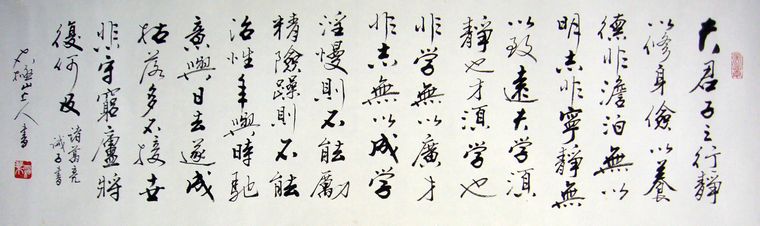 夫君子之行靜
以修身儉以養
德非澹泊無以
明志非寧靜無
以致遠夫学須
靜也才須学也
非学無以廣才
非志無以成学
淫慢則不能勵
精險躁則不能
治性年與時馳
意與日去遂成
枯落多不接世
悲守窮廬將
復何及
諸葛亮
诫子書
山人書